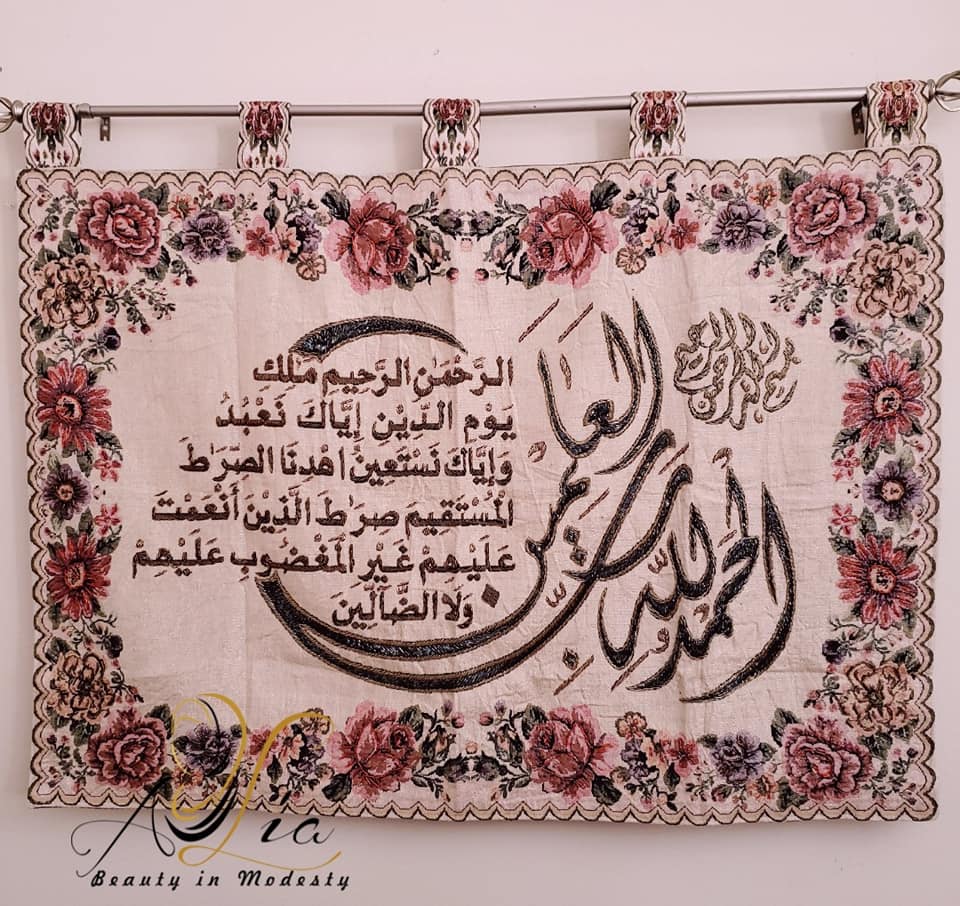 بسم الله الرحمن الرحيم
الحمد لله رب العالمين
الرَّحْمَٰنِ الرَّحِيمِ مَٰلِكِ
يَوْمِ الدِّيْنِ إِيَّاكَ نَعْبُدُ
وَإِيَّاكَ نَسْتَعِينُ اهْدِنَا الصِّرَٰطَ
الْمُسْتَقِيمَ صِرَٰطَ الَّذِيْنَ أَنْعَمْتَ
عَلَيْهِمْ غَيْرِ الْمَغْضُوبِ عَلَيْهِمْ
وَلَا الضَّآلِّينَ
Aylia
Beauty in Modesty